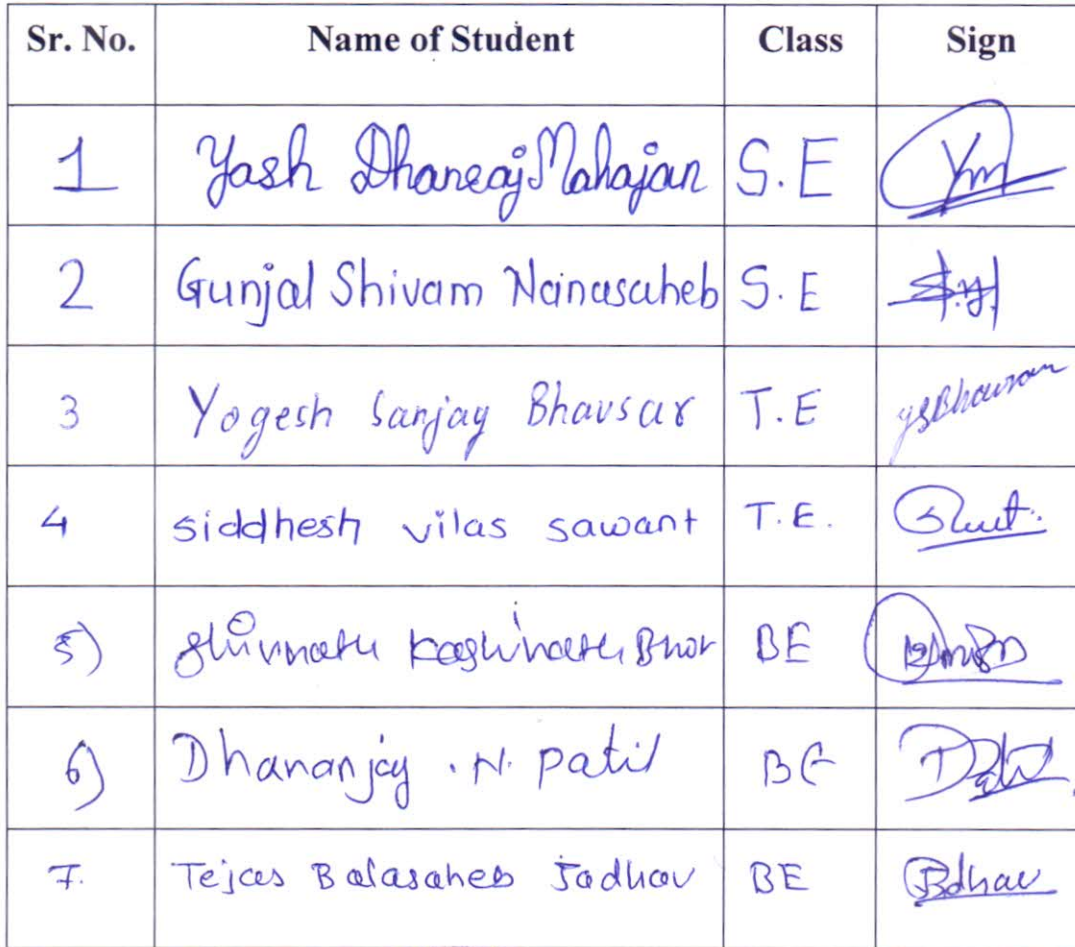 Sr. No. Name of Student Class Sign
1 Yash Dhanraj Mahajan S.E Ym
2 Gunjal Shivam Nanasaheb S.E
3 Yogesh Sanjay Bhavsar T.E YSBhavsar
4 siddhesh vilas sawant T.E.
5) Shivnath Kashinath Bhor BE
6) Dhananjay .N. patil BE
7. Tejas Balasaheb Jadhav BE